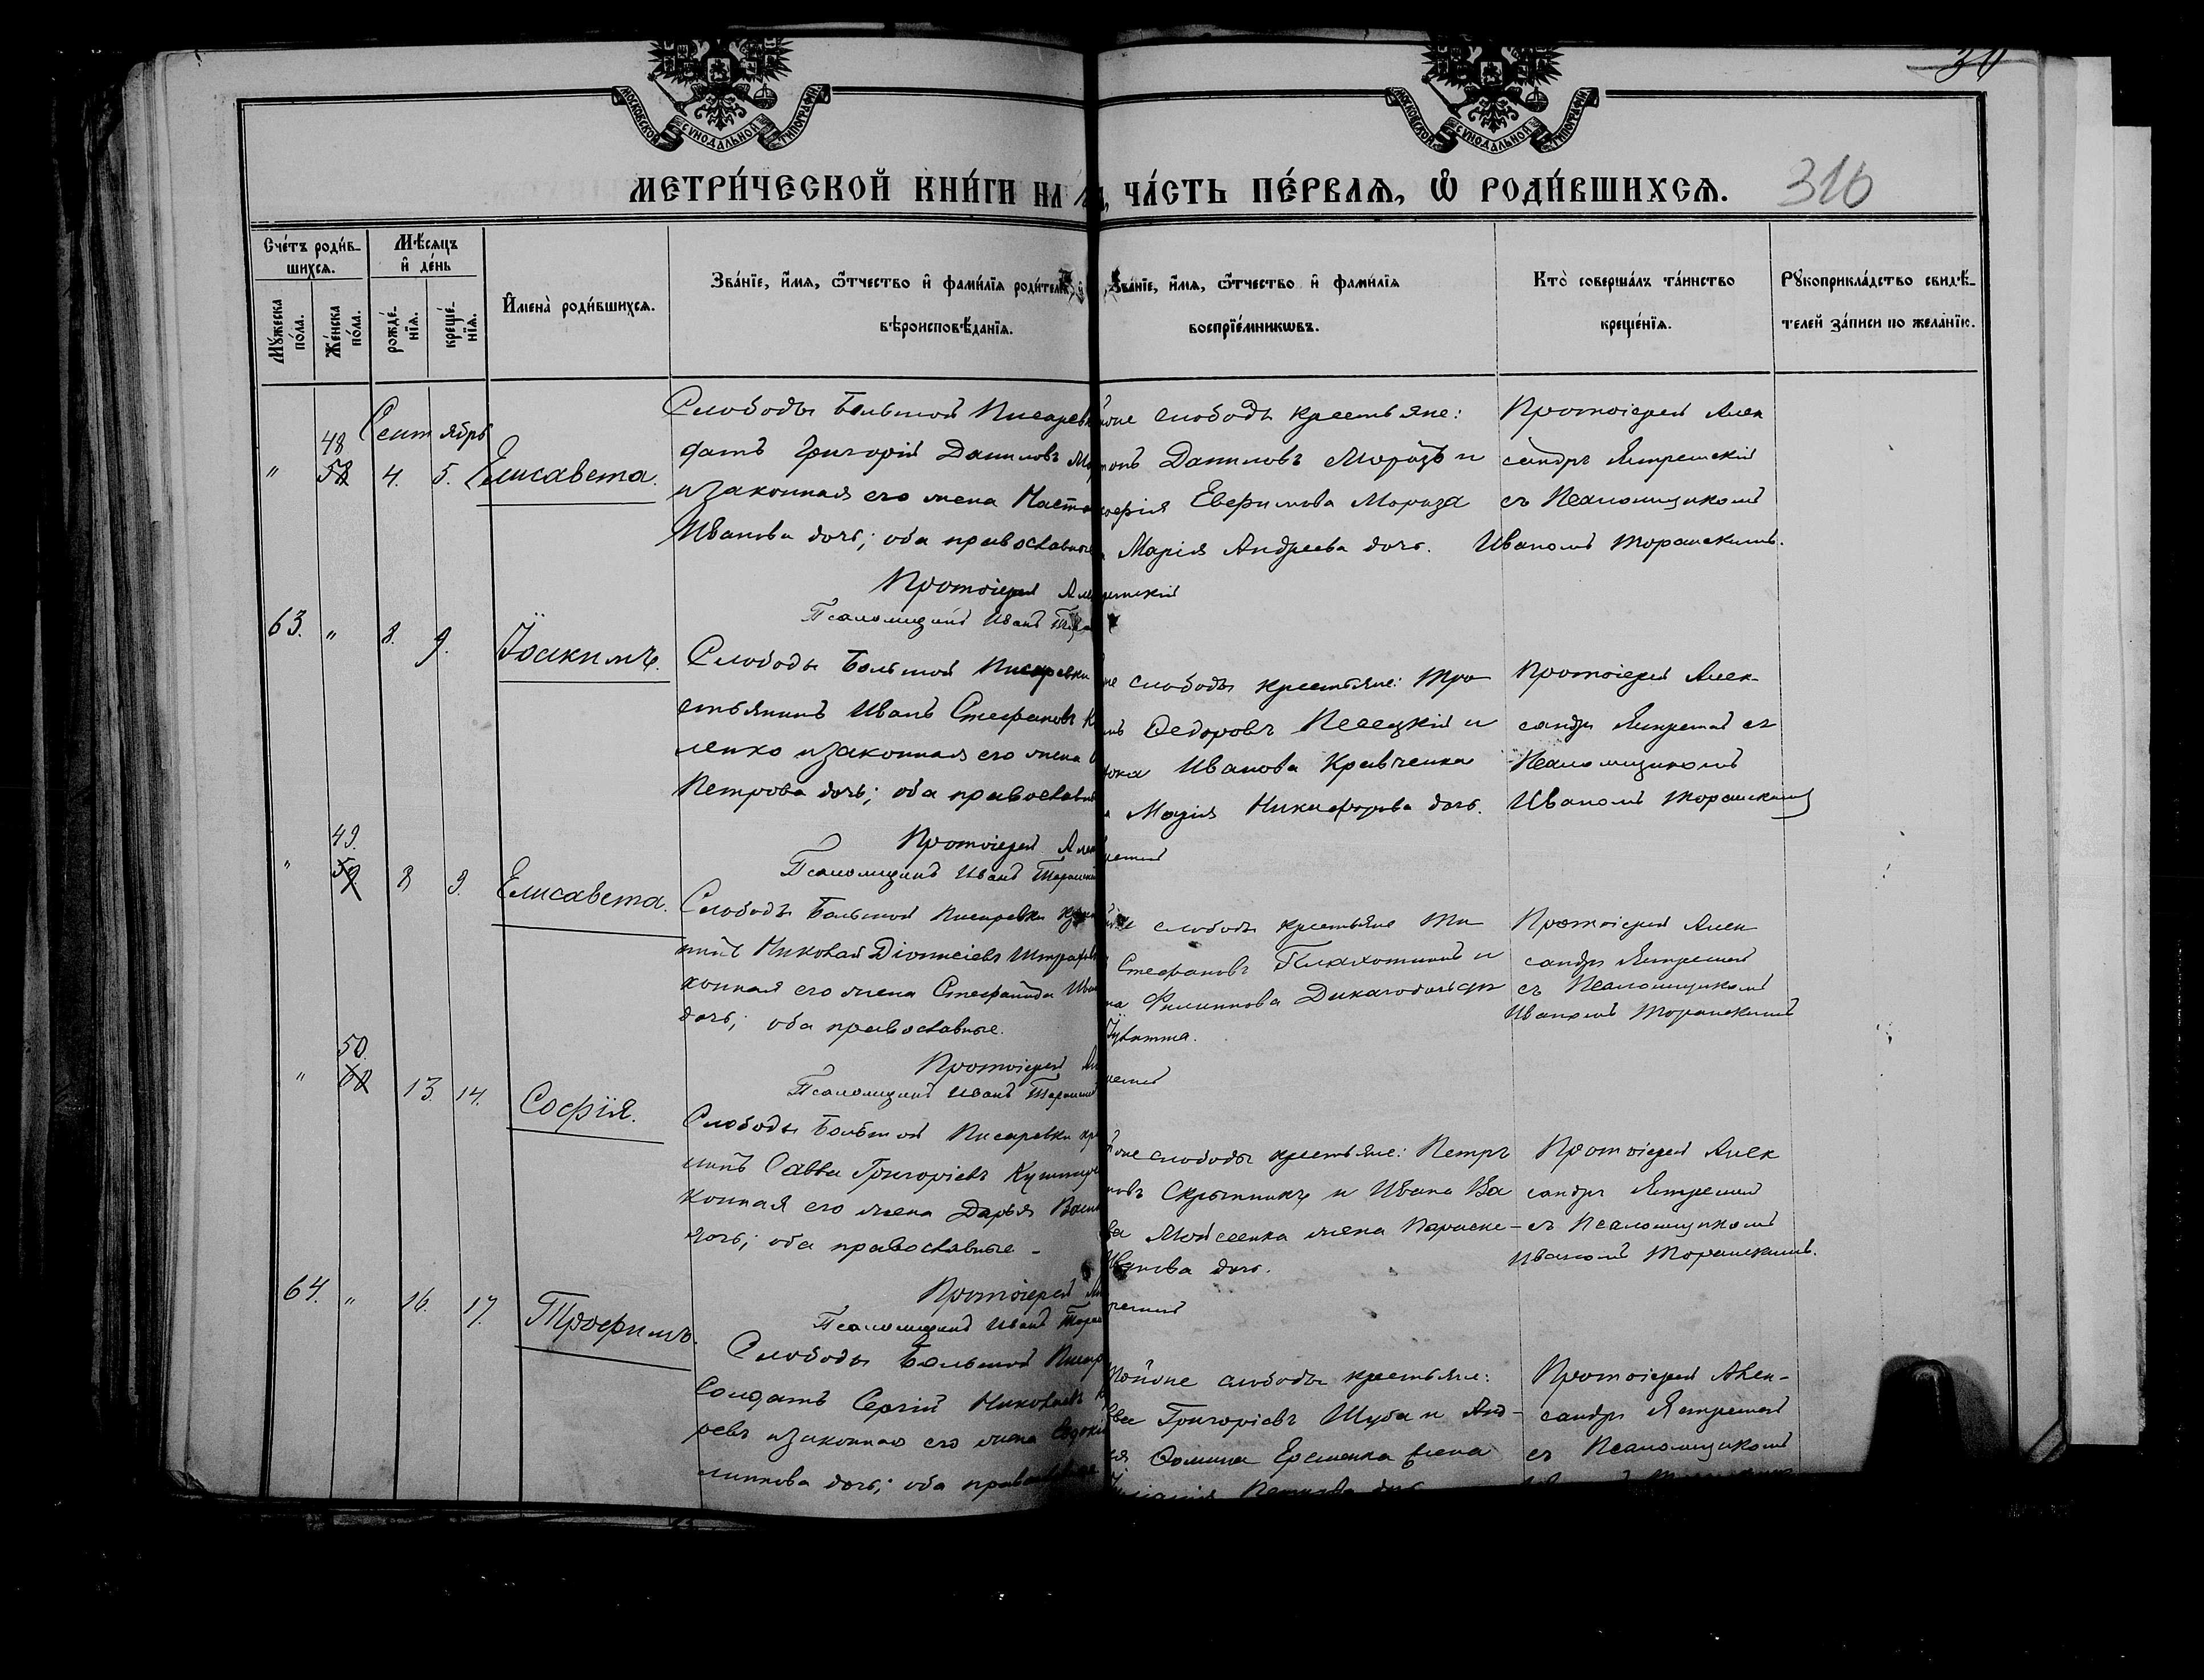 МОСКОВСКОЙ СУНОДАЛЬНОЙ ТИПОГРАФІИ
МОСКОВСКОЙ СУНОДАЛЬНОЙ ТИПОГРАФІИ
30
МЕТРИ́ЧЕСКОЙ КНИ́ГИ НА
ЧА́СТЬ ПЕ́РВАЯ, Ѿ РОДИ́ВШИХСЯ.
316
Сче́тъ роди́в-
шихся.
Мѣ́сяцъ
и҆ де́нь
Мꙋ́жеска
по́ла.
Же́нска
по́ла.
рожде́-
нїя.
креще́-
нїя.
И҆мена̀ роди́вшихся.
Зва́нїе, и҆́мя, ѻ҆́тчество и҆ фами́лїя роди́телей
вѣроисповѣ́данїя.
Зва́нїе, и҆́мя, ѻ҆́тчество и҆ фами́лїя
воспрїе́мникѡвъ.
Кто̀ соверша́лъ та́инство
креще́нїя.
Рꙋкоприкла́дство свидѣ́-
телей за́писи по жела́нїю.
Сентябрь
"
48
58
4.
5.
Елисавета.
Слободы Большой Писаревк
датъ Григорій Даниловъ Мо
и законная его жена Наста
Иванова дочь; оба православные
Протоіерей Але
Псаломщикъ Иванъ
слободы крестьяне:
Даниловъ Морозъ и
Евфимова Мороза
Марія Андреева дочь.
Протоіерей Алек
сандръ Ястремскій
съ Псаломщикомъ
Иваномъ Торанскимъ.
63.
"
8.
9.
Іоакимъ.
Слободы Большой Писаревки
стьянинъ Иванъ Стефановъ К
ленко и законная его жена
Петрова дочь; оба православн
Протоіерей Алек
Псаломщикъ Иванъ Торанскі
слободы крестьяне: Тро
Ѳедоровъ Песецкій и
Иванова Кравченка
Марія Никифорова дочь.
Протоіерей Алек-
сандръ Ястремскій съ
Псаломщикомъ
Иваномъ Торанскимъ
"
49.
59
8
9.
Елисавета.
Слободы Большой Писаревки
нинъ Николай Діонисіевъ Штраф
конная его жена Стефанида Ива
дочь; оба православные.
Протоіерей
Псаломщикъ Иванъ Торанскі
слободы крестьяне Ти
Стефановъ Плахотникъ и
на Филиппова
Протоіерей Алек
сандръ Ястремскій
съ Псаломщикомъ
Иваномъ Торанскимъ
"
50.
60
13
14.
Софія.
Слободы Большой Писаревки кр
нинъ Савва Григоріевъ Кушнир
конная его жена Дарья Васи
дочь; оба православные -
Протоіерей
Псаломщикъ Иванъ Торан
слободы крестьяне: Петръ
Скрыпникъ и Ивана Ва
Мойсеенка жена Параске-
Иванова дочь.
Протоіерей Алек
сандръ Ястремскій
съ Псаломщикомъ
Иваномъ Торанскимъ.
64.
"
16.
17.
Трофимъ.
Слободы Большой Писар
Солдатъ Сергій Николаевъ
ревъ и законная его жена Евдоки
липпова дочь; оба православные
слободы крестьяне:
Григоріевъ Шуба и Анд-
Ѳомина Еременка жена
Петрова дочь
Протоіерей Алек-
сандръ Ястремскій
съ Псаломщикомъ